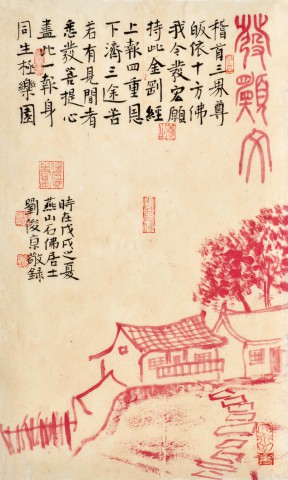 發願文
稽首三界尊
皈依十方佛
我今發宏願
持此金剛經
上報四重恩
下濟三途苦
若有見聞者
悉發菩提心
盡此一報身
同生極樂國
時在戊戌之夏
燕山石佛居士
劉俊京敬錄